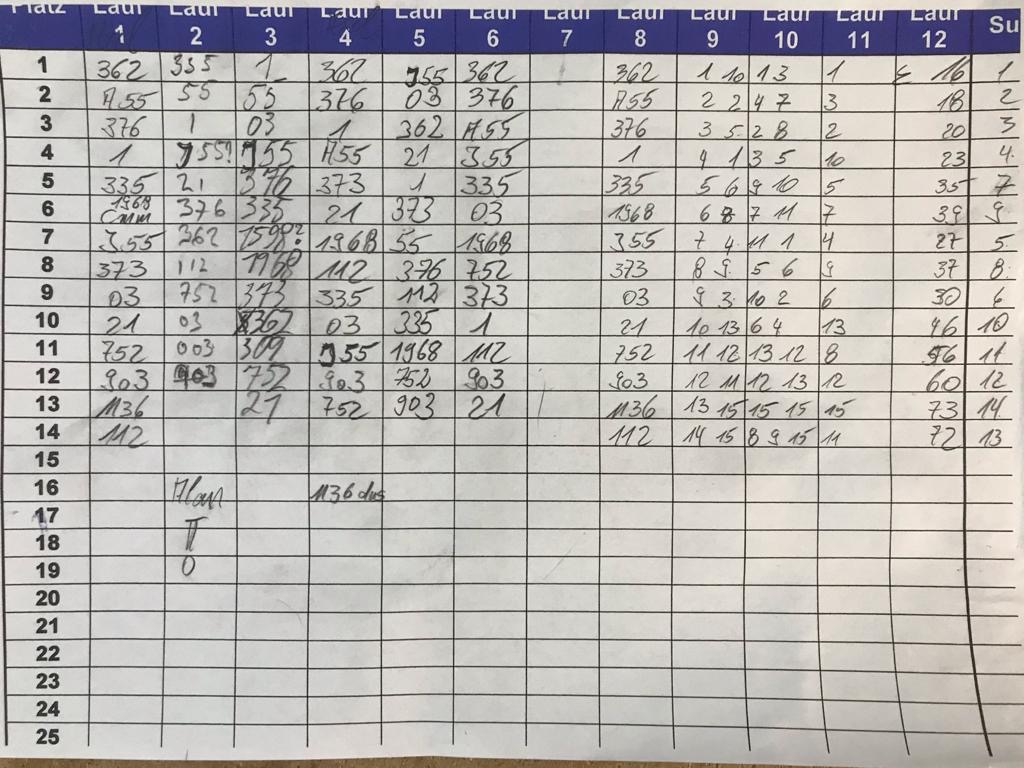 Platz Lauf Lauf Lauf Lauf Lauf Lauf Lauf Lauf Lauf Lauf Lauf Lauf Su
1 2 3 4 5 6 7 8 9 10 11 12
1 362 355 1 362 J55 362 362 1 10 1 3 1 16 1
2 A55 55 55 376 03 376 A55 2 2 4 7 3 18 2
3 376 1 03 1 362 A55 376 3 5 2 8 2 20 3
4 1 J55? J55 A55 21 355 1 4 1 3 5 10 23 4.
5 335 21 376 373 1 335 335 5 6 9 10 5 35 7
6 1968 376 335 21 373 03 1968 6 8 7 11 7 39 9
7 355 362 1598? 1968 55 1968 355 7 4 11 1 4 27 5
8 373 112 1968 112 376 752 373 8 9 5 6 9 37 8
9 03 752 373 335 112 373 03 9 3 10 2 6 30 6
10 21 03 362 03 335 1 21 10 13 6 4 13 46 10
11 752 003 309 J55 1968 112 752 11 12 13 12 8 56 11
12 903 903 752 903 752 903 903 12 11 12 13 12 60 12
13 1136 21 752 903 21 1136 13 15 15 15 15 73 14
14 112 112 14 15 8 9 15 11 72 13
15
16 1136 dns
17 II
18
19 0
20
21
22
23
24
25